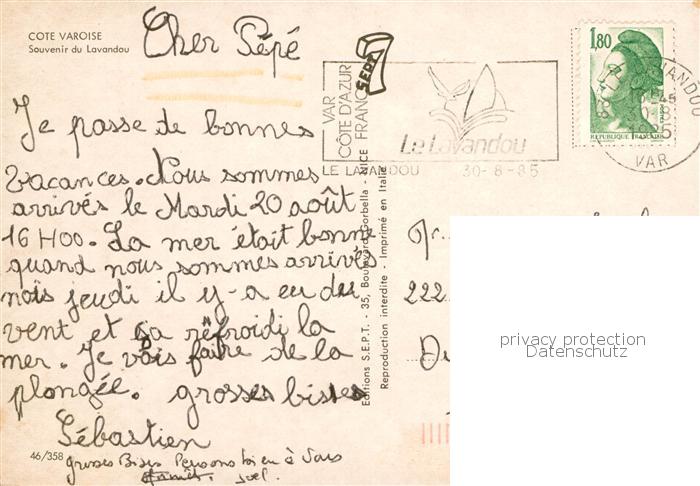 COTE VAROISE
Souvenir du Lavandou
Cher Pépé
Je passe de bonnes
vacances. Nous sommes
arrivés le Mardi 20 août
16 H00. La mer était bonne
quand nous sommes arrivés
mais jeudi il y-a eu du
vent et ça réfroidi la
mer. Je vais faire de la
plongée. grosses bises
Sébastien
46/358
grosses Bises Pensons bien à Vous
Joel.
Editions S.E.P.T. - 35, Boulevard Gorbella - NICE
Reproduction interdite - Imprimé en Italie
SEPT
VAR
CÔTE D'AZUR
FRANCE
Le Lavandou
LE LAVANDOU 30-8-85
1,80
REPUBLIQUE FRANÇAISE
VAR
222
privacy protection
Datenschutz